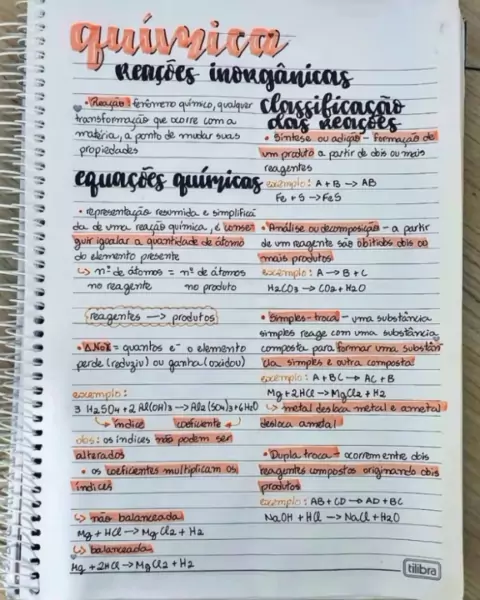 química
reações inorgânicas
• Reação: fenômeno químico, qualquer
transformação que ocorre com a
matéria, a ponto de mudar suas
propiedades
equações químicas
• representação resumida e simplifica
da de uma reação química, é conse
guir igualar a quantidade de átomo
do elemento presente
↳ nº de átomos = nº de átomos
no reagente no produto
reagentes → produtos
• ΔNox = quantos e⁻ o elemento
perde (reduziu) ou ganha (oxidou)
exemplo:
3 H2SO4 + 2 Al(OH)3 → Al2(SO4)3 + 6H2O
índice coeficiente
obs: os índices não podem ser
alterados
• os coeficientes multiplicam os
índices
↳ não balanceada
Mg + HCl → MgCl2 + H2
↳ balanceada
Mg + 2HCl → MgCl2 + H2
classificação
das reações
• Síntese ou adição - Formação de
um produto a partir de dois ou mais
reagentes
exemplo: A + B → AB
Fe + S → FeS
• Análise ou decomposição - a partir
de um reagente são obtidos dois ou
mais produtos
exemplo: A → B + C
H2CO3 → CO2 + H2O
• Simples-troca - uma substância
simples reage com uma substância
composta para formar uma substân
cia simples e outra composta
exemplo: A + BC → AC + B
Mg + 2HCl → MgCl2 + H2
↳ metal desloca metal e ametal
desloca ametal
• Dupla troca - ocorrem entre dois
reagentes compostos originando dois
produtos
exemplo: AB + CD → AD + BC
NaOH + HCl → NaCl + H2O
tilibra